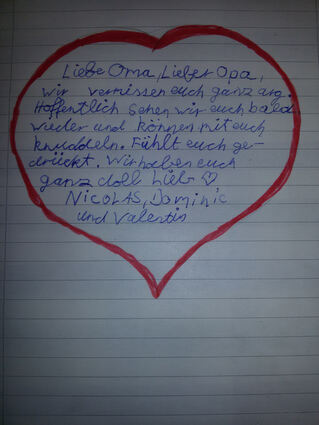 Liebe Oma, Lieber Opa,
wir vermissen euch ganz arg.
Hoffentlich sehen wir euch bald
wieder und können mit euch
knuddeln. Fühlt euch ge-
drückt. Wir haben euch
ganz doll Lieb ♡
NICOLAS, Dominic
und Valentin